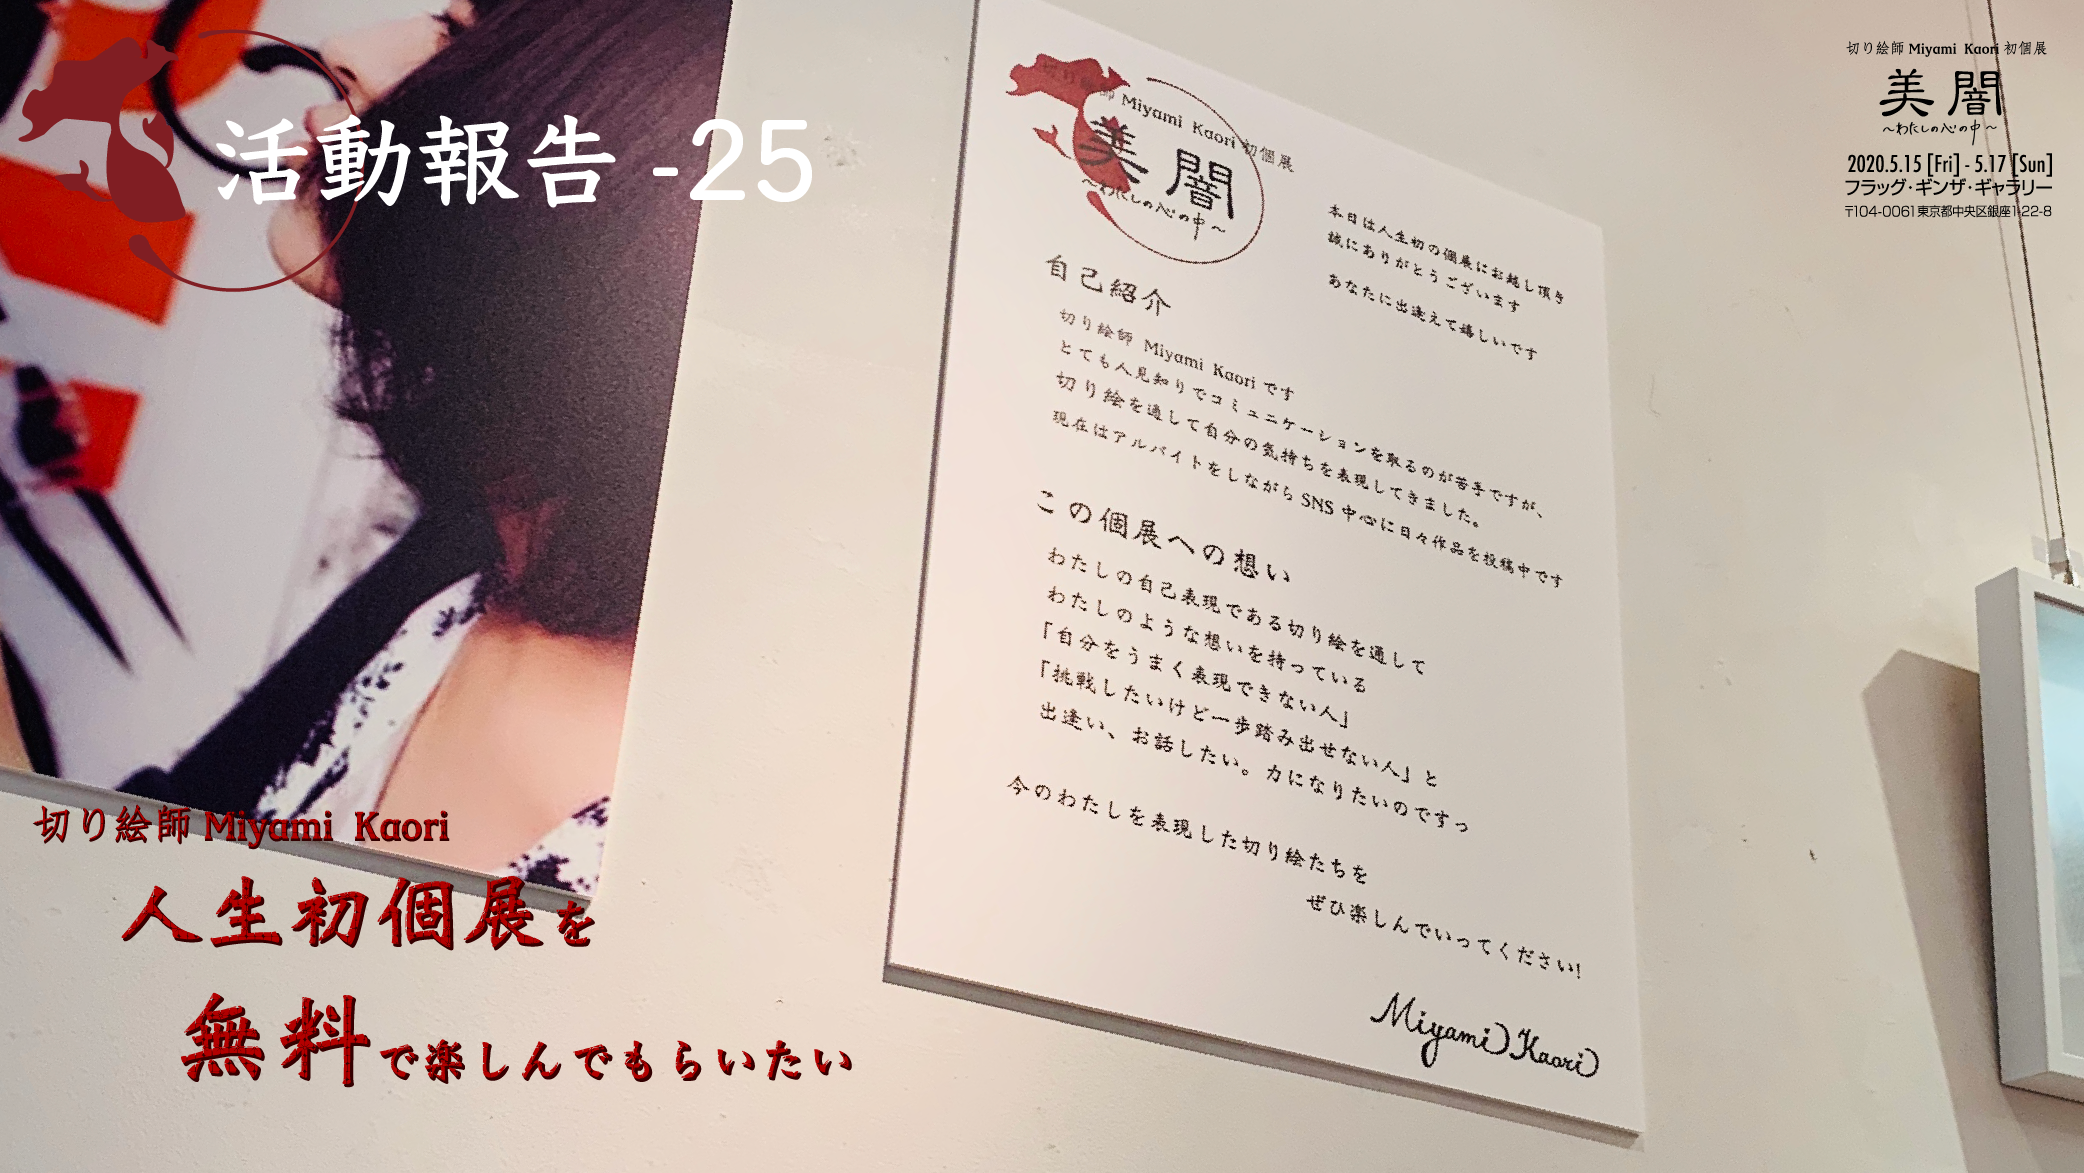 活動報告 -25
切り絵師 Miyami Kaori 初個展
美闇
～わたしの心の中～
2020.5.15 [Fri] - 5.17 [Sun]
フラッグ・ギンザ・ギャラリー
〒104-0061 東京都中央区銀座1-22-8
切り絵師 Miyami Kaori 初個展
美闇
～わたしの心の中～
本日は人生初の個展にお越し頂き
誠にありがとうございます
あなたに出逢えて嬉しいです
自己紹介
切り絵師 Miyami Kaori です
とても人見知りでコミュニケーションを取るのが苦手ですが、
切り絵を通して自分の気持ちを表現してきました。
現在はアルバイトをしながら SNS 中心に日々作品を投稿中です
この個展への想い
わたしの自己表現である切り絵を通して
わたしのような想いを持っている
「自分をうまく表現できない人」
「挑戦したいけど一歩踏み出せない人」と
出逢い、お話したい。力になりたいのですっ
今のわたしを表現した切り絵たちを
ぜひ楽しんでいってください!
Miyami Kaori
切り絵師 Miyami Kaori
人生初個展を
無料で楽しんでもらいたい